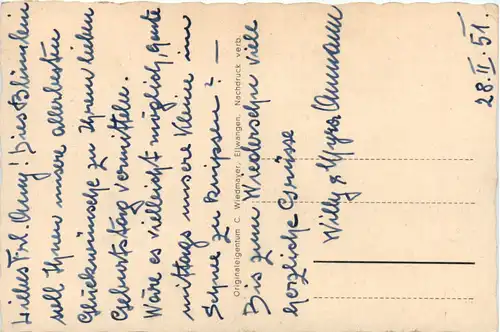 Liebes Frl. Anny! Dies Blümlein
soll Ihnen unsere allerbesten
Glückwünsche zu Ihrem lieben
Geburtstag vermitteln.
Wäre es vielleicht möglich, heute
mittags unsere Kleine im
Schnee zu knipsen? —
Bis zum Wiedersehn viele
herzliche Grüsse
Willy & Amann
28.II.51.
Originaleigentum C. Wiedmayer, Ellwangen, Nachdruck verb.